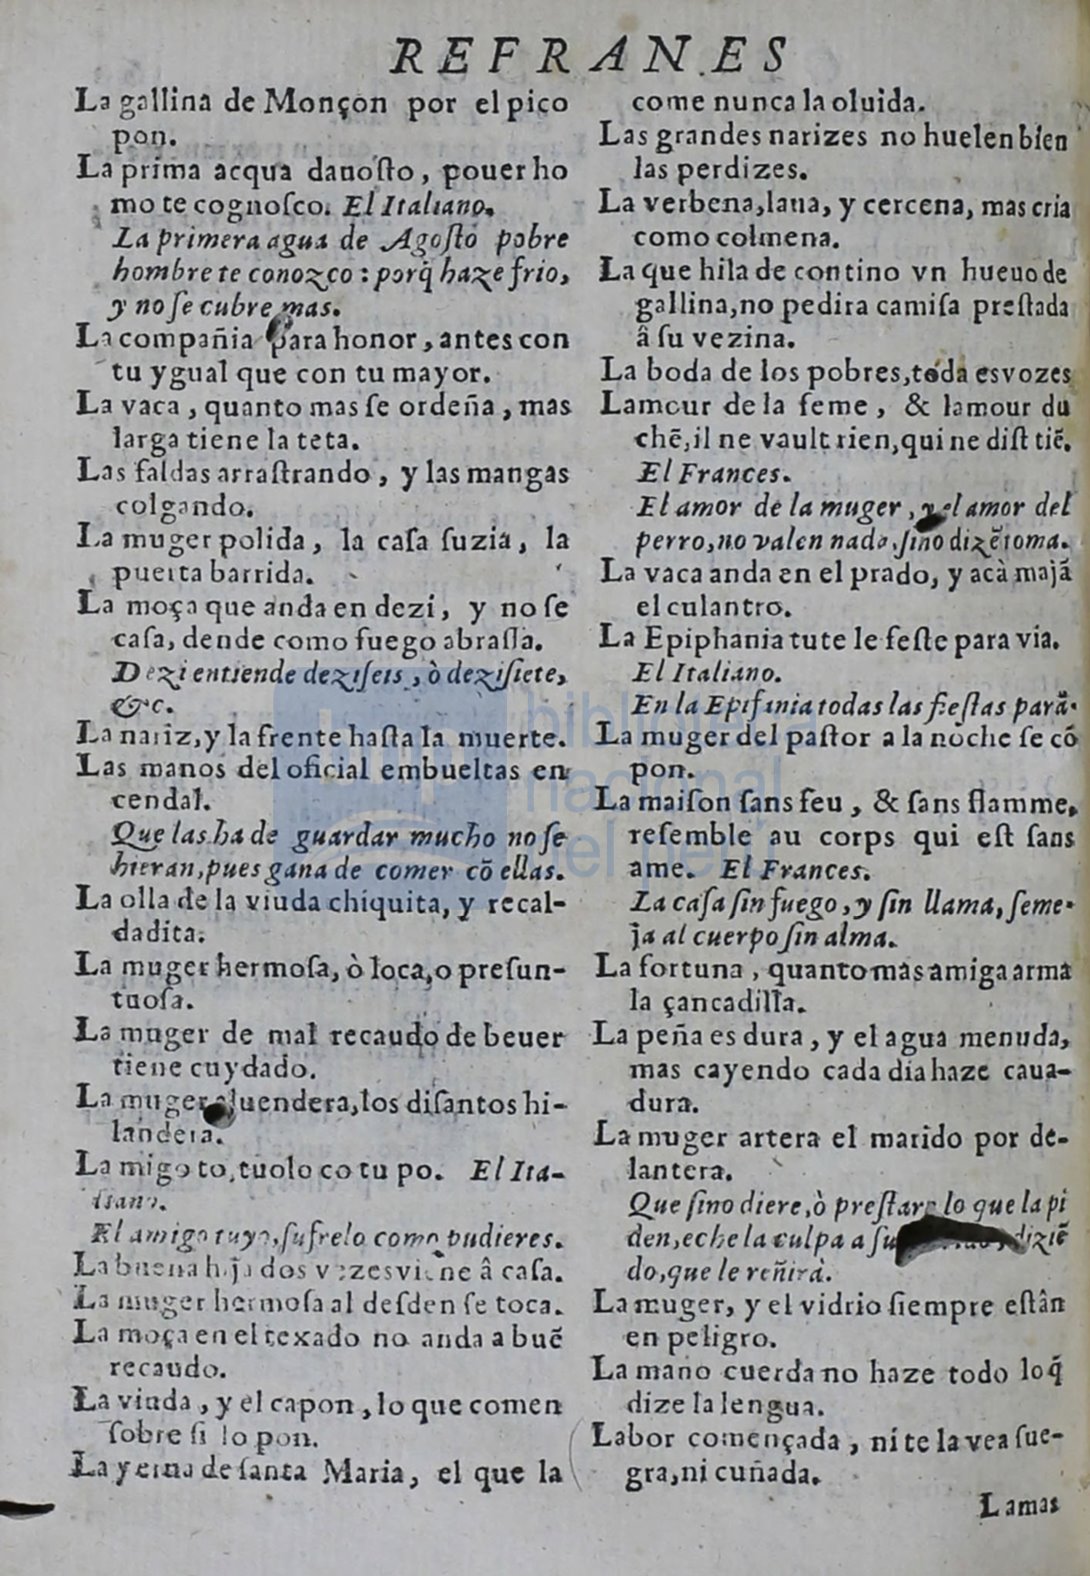 REFRANES
La gallina de Monçon por el pico
pon.
La prima acqua danosto, pouer ho
mo te cognosco. El Italiano.
La primera agua de Agosto pobre
hombre te conozco : porq̃ haze frio,
y no se cubre mas.
La compañia para honor, antes con
tu ygual que con tu mayor.
La vaca, quanto mas se ordeña, mas
larga tiene la teta.
Las faldas arrastrando, y las mangas
colgando.
La muger polida, la casa suzia, la
puerta barrida.
La moça que anda en dezi, y no se
casa, dende como fuego abrassa.
Dezi entiende deziseis, ò dezisiete,
&c.
La nariz, y la frente hasta la muerte.
Las manos del oficial embueltas en
cendal.
Que las ha de guardar mucho no se
hieran, pues gana de comer cō ellas.
La olla de la viuda chiquita, y recal-
dadita.
La muger hermosa, ò loca, o presun-
tuosa.
La muger de mal recaudo de beuer
tiene cuydado.
La muger aluendera, los disantos hi-
landera.
La migo to, tuolo co tu po. El Ita-
liano.
El amigo tuyo, sufrelo como pudieres.
La buena hija dos vezes viene â casa.
La muger hermosa al desden se toca.
La moça en el texado no anda a buẽ
recaudo.
La viuda, y el capon, lo que comen
sobre si lo pon.
La yerua de santa Maria, el que la
come nunca la oluida.
Las grandes narizes no huelen bien
las perdizes.
La verbena, laua, y cercena, mas cria
como colmena.
La que hila de contino vn hueuo de
gallina, no pedira camisa prestada
â su vezina.
La boda de los pobres, toda es vozes
Lamour de la feme, & lamour du
chẽ, il ne vault rien, qui ne dist tiẽ.
El Frances.
El amor de la muger, y el amor del
perro, no valen nada, sino dizẽ toma.
La vaca anda en el prado, y acà majã
el culantro.
La Epiphania tute le feste para via.
El Italiano.
En la Epifania todas las fiestas parã.
La muger del pastor a la noche se cō
pon.
La maison sans feu, & sans flamme,
resemble au corps qui est sans
ame. El Frances.
La casa sin fuego, y sin llama, seme-
ja al cuerpo sin alma.
La fortuna, quanto mas amiga arma
la çancadilla.
La peña es dura, y el agua menuda,
mas cayendo cada dia haze caua-
dura.
La muger artera el marido por de-
lantera.
Que sino diere, ò prestare lo que la pi
den, eche la culpa a su diziẽ
do, que le reñirà.
La muger, y el vidrio siempre estân
en peligro.
La mano cuerda no haze todo lo q̃
dize la lengua.
Labor començada, ni te la vea sue-
gra, ni cuñada.
La mas
biblioteca
nacional
del perú